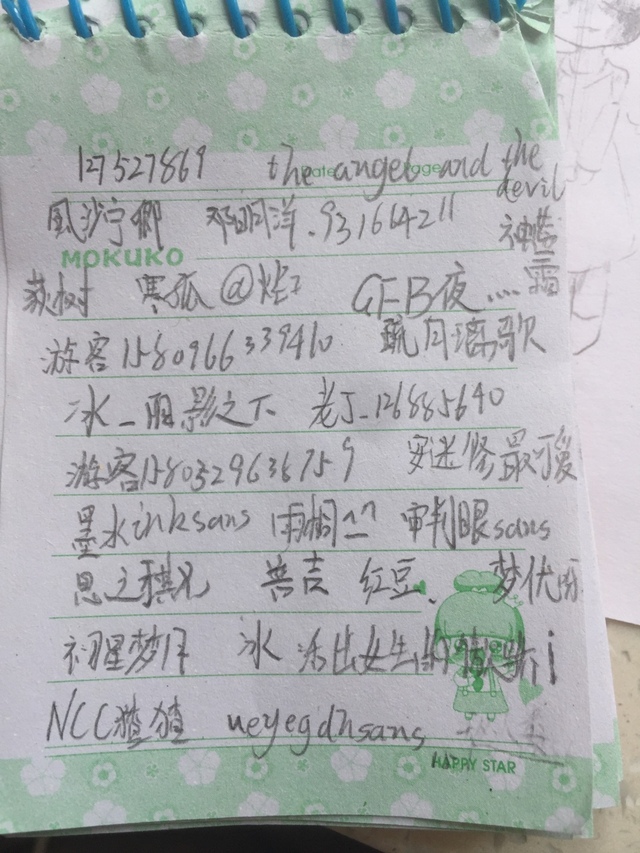 127527869 the angel and the devil
風沙宁鄉 邓明洋.931664211
MOKUKO
荻树 寒狐@ GFB夜....霜
游客1580966339410 疏月漓歌
冰_雨影之下 老J_126885640
游客1580329636759 安迷修最可爱
墨水inksans 雨桐^^ 审判眼sans
思之祺兄 普吉 红豆、 梦优
初星梦月 冰 活出女生的
NCC猹猹 ueyegdhsans
HAPPY STAR